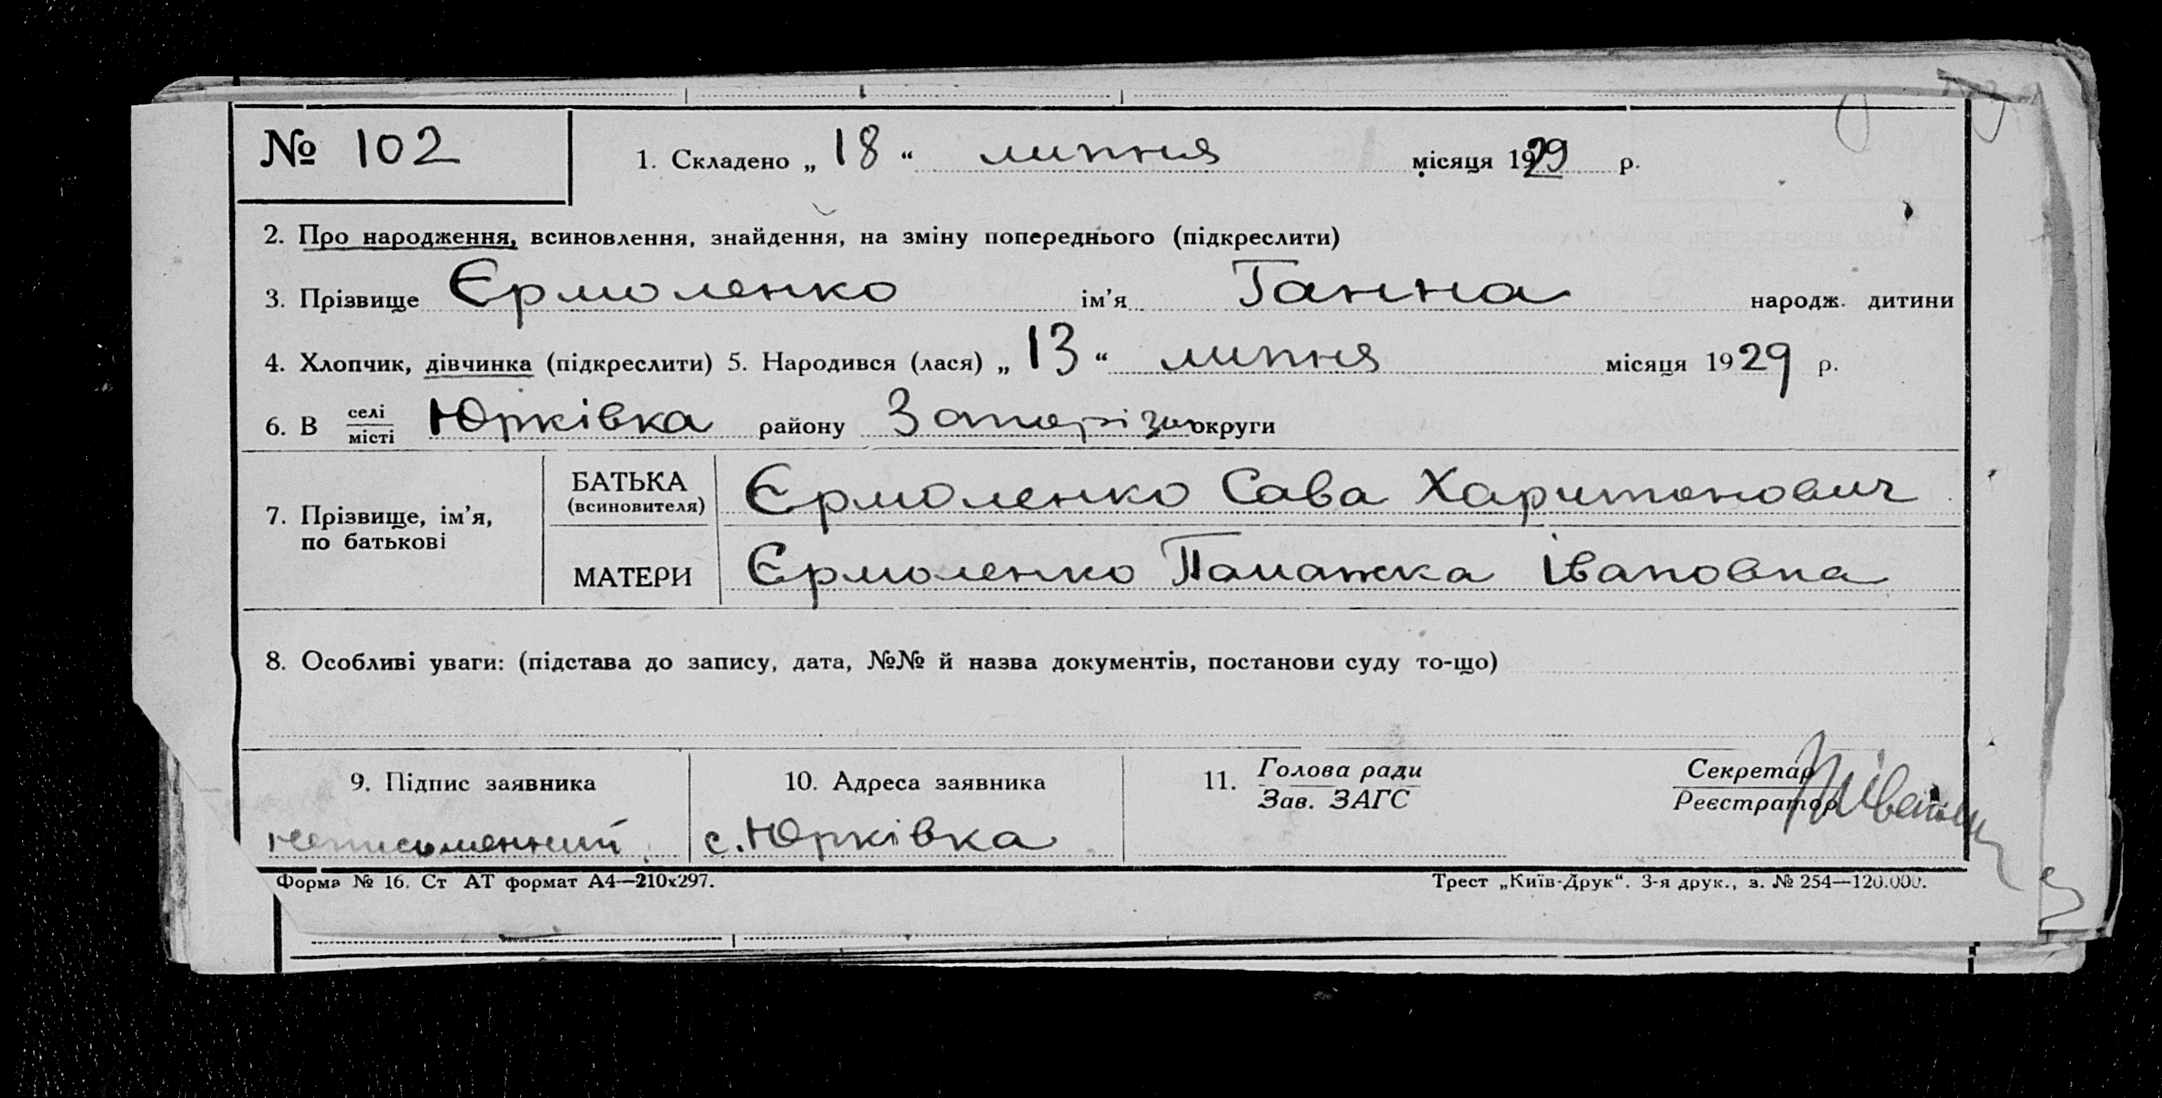 № 102 1. Складено „ 18 “ липня місяця 1929 р.
2. Про народження, всиновлення, знайдення, на зміну попереднього (підкреслити)
3. Прізвище Єрмоленко ім’я Ганна народж. дитини
4. Хлопчик, дівчинка (підкреслити) 5. Народився (лася) „ 13 “ липня місяця 1929 р.
6. В селі Юрківка району Запоріз округи
місті
7. Прізвище, ім’я, по батькові
БАТЬКА (всиновителя) Єрмоленко Сава Харитонович
МАТЕРИ Єрмоленко Паважка Івановна
8. Особливі уваги: (підстава до запису, дата, №№ й назва документів, постанови суду то-що)
9. Підпис заявника 10. Адреса заявника 11. Голова ради Секретар
Зав. ЗАГС Реєстратор
неписьменний с. Юрківка
Форма № 16. Ст АТ формат А4—210х297. Трест „Київ-Друк“. 3-я друк., з. № 254—120.000.